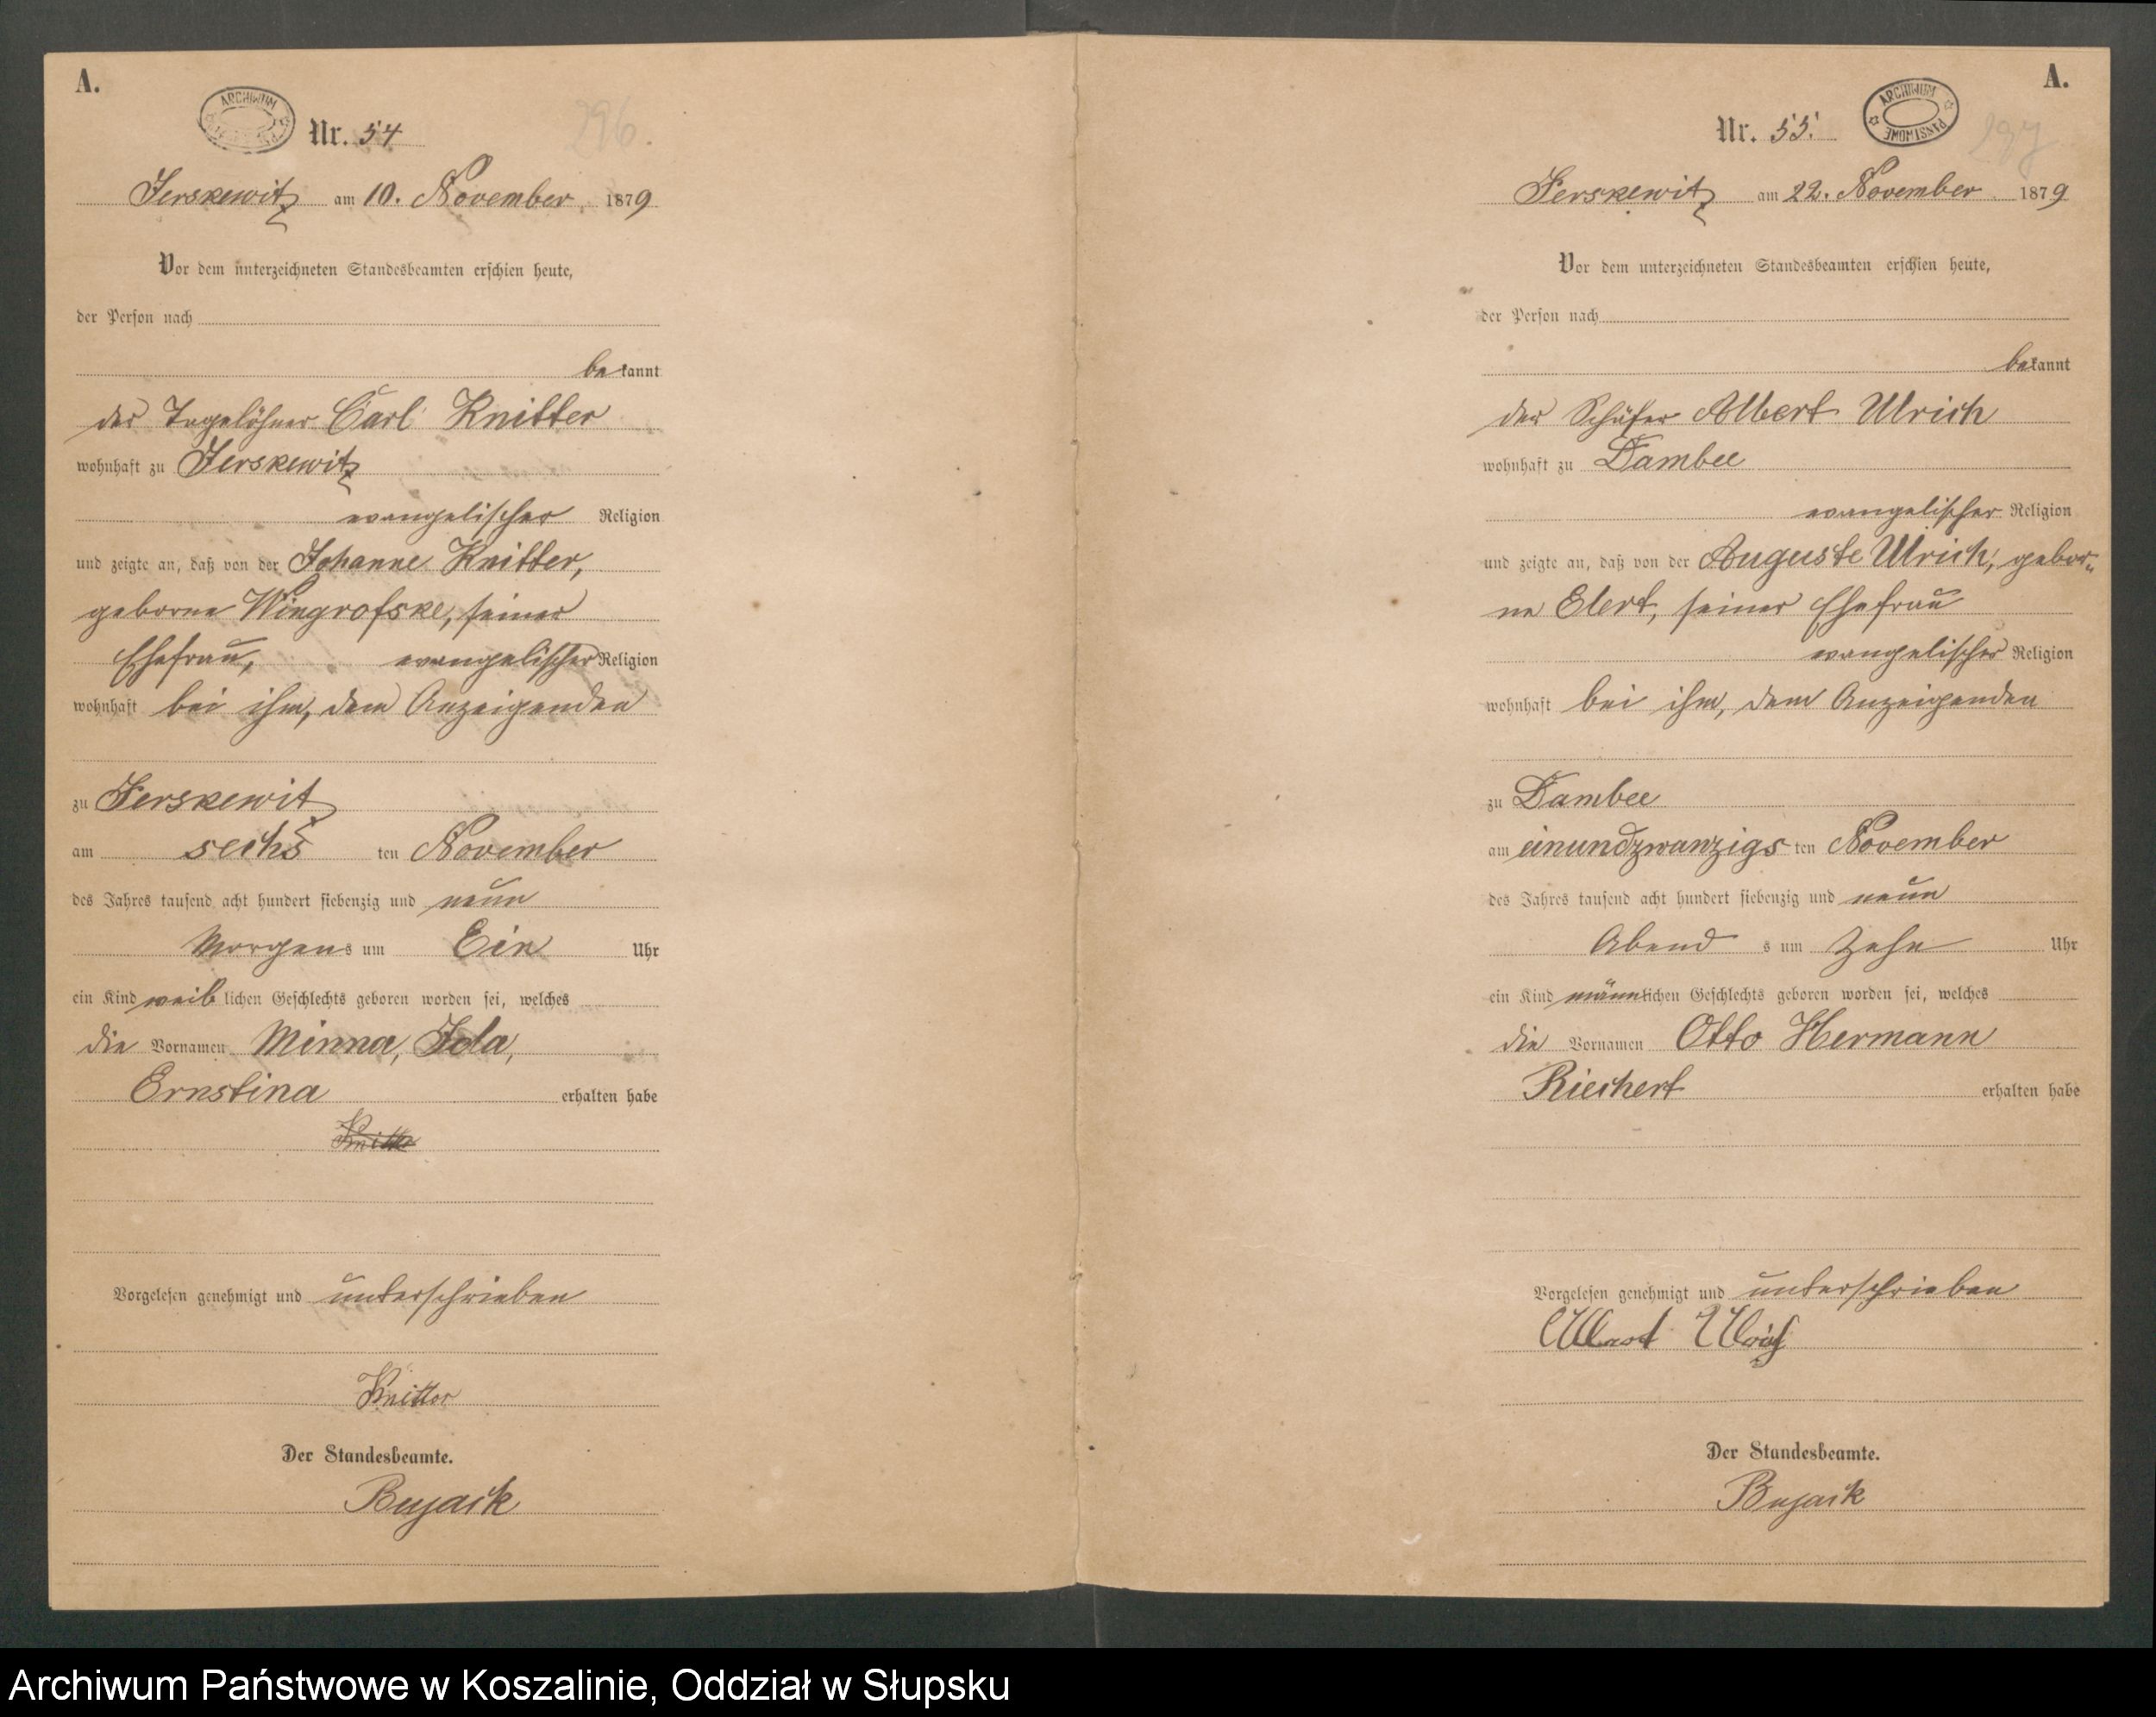 A.
ARCHIWUM
Nr. 54
296.
Jerskewitz am 10. November 1879
Vor dem unterzeichneten Standesbeamten erschien heute,
der Person nach
bekannt
der Tagelöhner Carl Knitter
wohnhaft zu Jerskewitz
evangelischer Religion
und zeigte an, daß von der Johanne Knitter,
geborne Wingrofske, seiner
Ehefrau, evangelischer Religion
wohnhaft bei ihm, dem Anzeigenden
zu Jerskewitz
am sechs ten November
des Jahres tausend acht hundert siebenzig und neun
Morgens um Ein Uhr
ein Kind weiblichen Geschlechts geboren worden sei, welches
die Vornamen Minna, Ida,
Ernstina erhalten habe
Knitter
Vorgelesen genehmigt und unterschrieben
Knitter
Der Standesbeamte.
Bujack
A.
ARCHIWUM PAŃSTWOWE
Nr. 55.
297
Jerskewitz am 22. November 1879
Vor dem unterzeichneten Standesbeamten erschien heute,
der Person nach
bekannt
der Schäfer Albert Ulrich
wohnhaft zu Dambee
evangelischer Religion
und zeigte an, daß von der Auguste Ulrich, gebor-
ne Elert, seiner Ehefrau
evangelischer Religion
wohnhaft bei ihm, dem Anzeigenden
zu Dambee
am einundzwanzigs ten November
des Jahres tausend acht hundert siebenzig und neun
Abend s um Zehn Uhr
ein Kind männlichen Geschlechts geboren worden sei, welches
die Vornamen Otto Hermann
Riechert erhalten habe
Vorgelesen genehmigt und unterschrieben
Albert Ulrich
Der Standesbeamte.
Bujack
Archiwum Państwowe w Koszalinie, Oddział w Słupsku